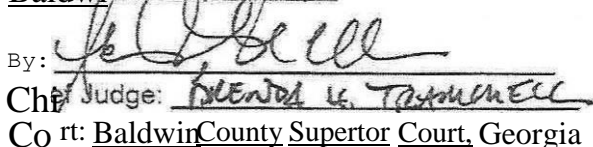 Baldwi
By:
Chief Judge: BRENDA H. TRAMMELL
Co rt: BaldwinCounty Supertor Court, Georgia